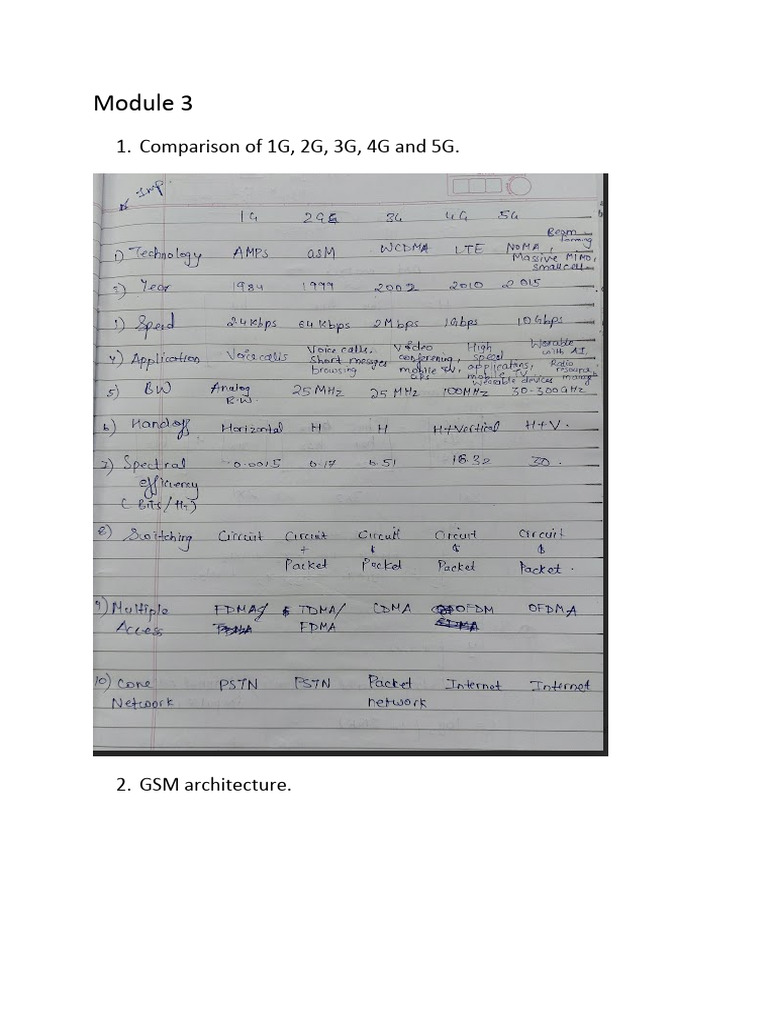 Module 3
1. Comparison of 1G, 2G, 3G, 4G and 5G.
Imp.
1G 2G 3G 4G 5G
1) Technology AMPs GSM WCDMA LTE NOMA, Beam forming
Massive MIMO,
small cell
Year 1984 1999 2002 2010 2015
Speed 2.4 kbps 64 kbps 2 Mbps 1 Gbps 10 Gbps
4) Application Voice calls Voice calls, Video High Werable
Short messages conferencing, speed with AI,
browsing mobile applications, Radio
mobile TV, resource
Wearable devices
5) BW Analog 25 MHz 25 MHz 100MHz 30-300GHz
B.W.
6) Handoff Horizontal H H H+Vertical H+V.
7) Spectral 0.0015 0.17 0.51 18.32 30.
efficiency
(Bits/Hz)
8) Switching Circuit Circuit Circuit Circuit Circuit
+ & & &
Packet Packet Packet Packet.
9) Multiple FDMA TDMA/ CDMA OFDM OFDMA
Access FDMA
10) Core PSTN PSTN Packet Internet Internet
Network network
2. GSM architecture.